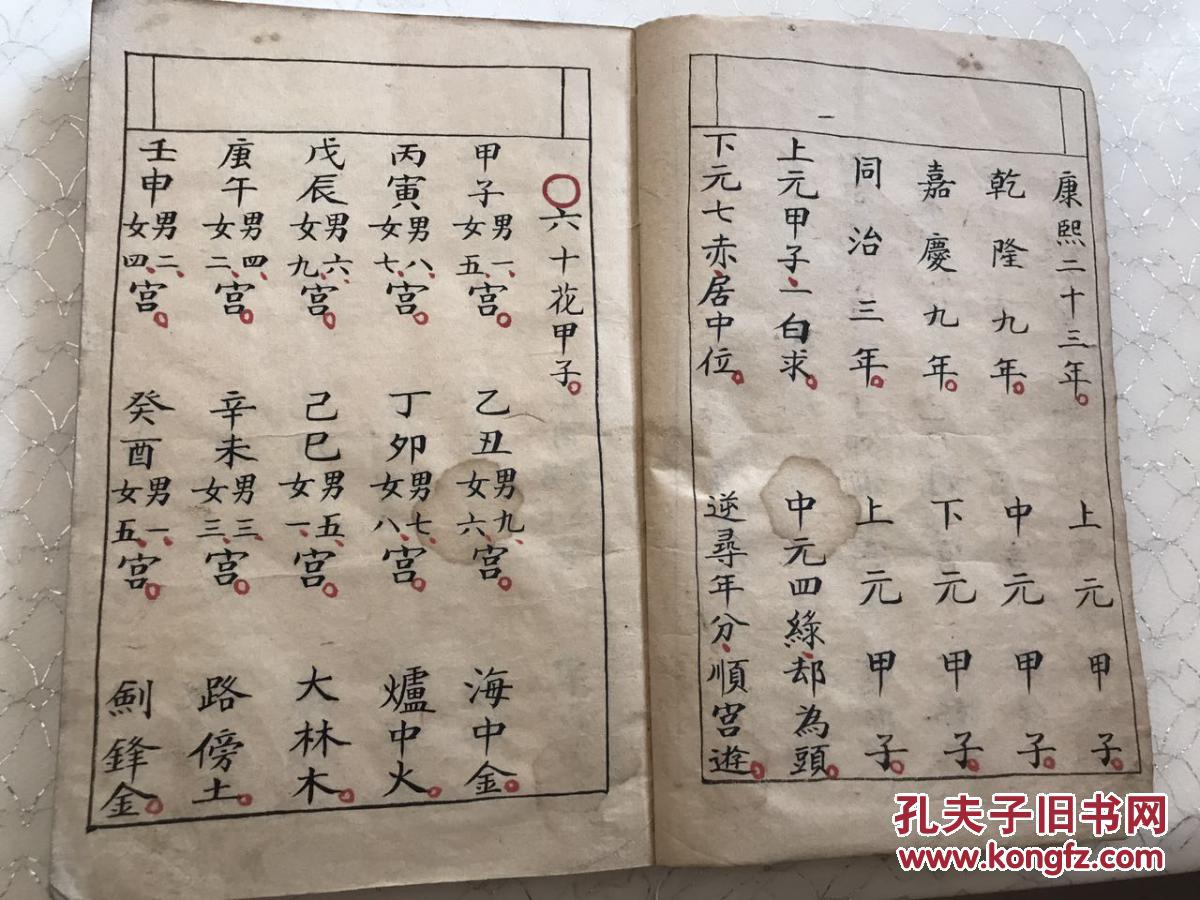 康熙二十三年。 上元甲子。
乾隆九年。 中元甲子。
嘉慶九年。 下元甲子。
同治三年。 上元甲子。
上元甲子、一白求。 中元四綠、却為頭。
下元七赤、居中位。 逆尋年分、順宮遊。
○六十花甲子。
甲子男一、女五、宮。 乙丑男九、女六、宮。 海中金。
丙寅男八、女七、宮。 丁卯男七、女八、宮。 爐中火。
戊辰男六、女九、宮。 己巳男五、女一、宮。 大林木。
庚午男四、女二、宮。 辛未男三、女三、宮。 路傍土。
壬申男二、女四、宮。 癸酉男一、女五、宮。 劍鋒金。
孔夫子旧书网
www.kongfz.com